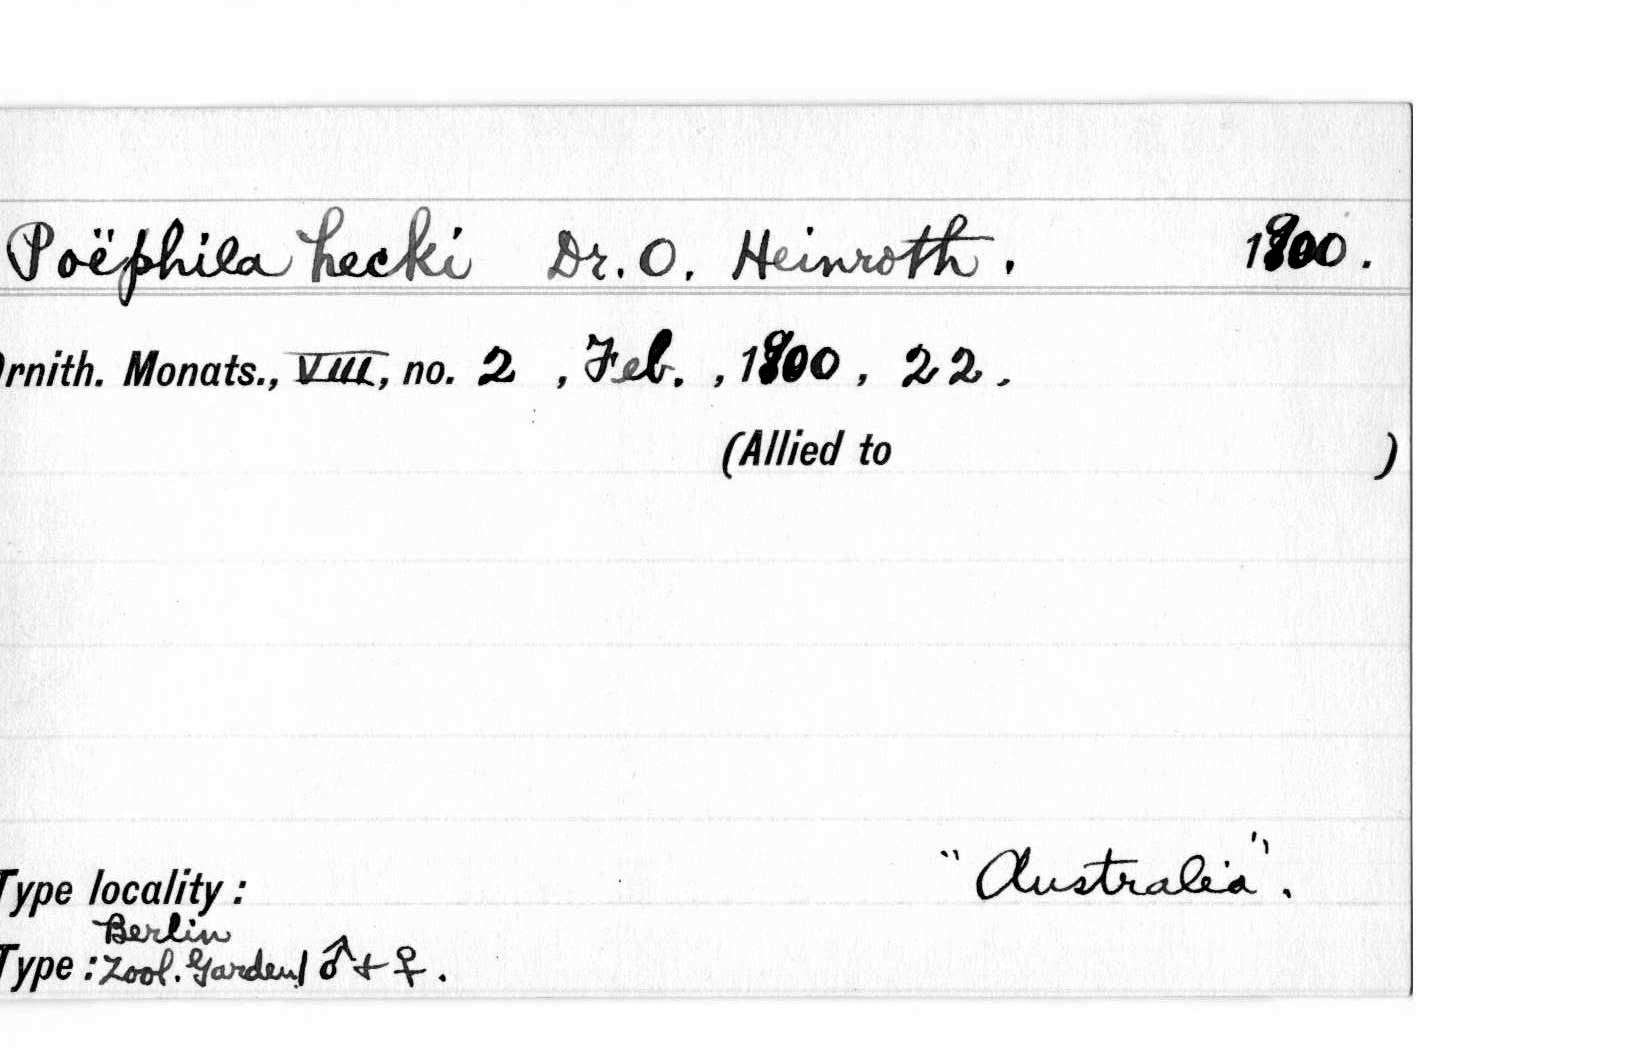 Poëphila hecki Dr. O. Heinroth. 1900.
Ornith. Monats., VIII, no. 2, Feb., 1900, 22.
(Allied to )
Type locality: "Australia".
Berlin
Type: Zool. Garden! ♂ + ♀.